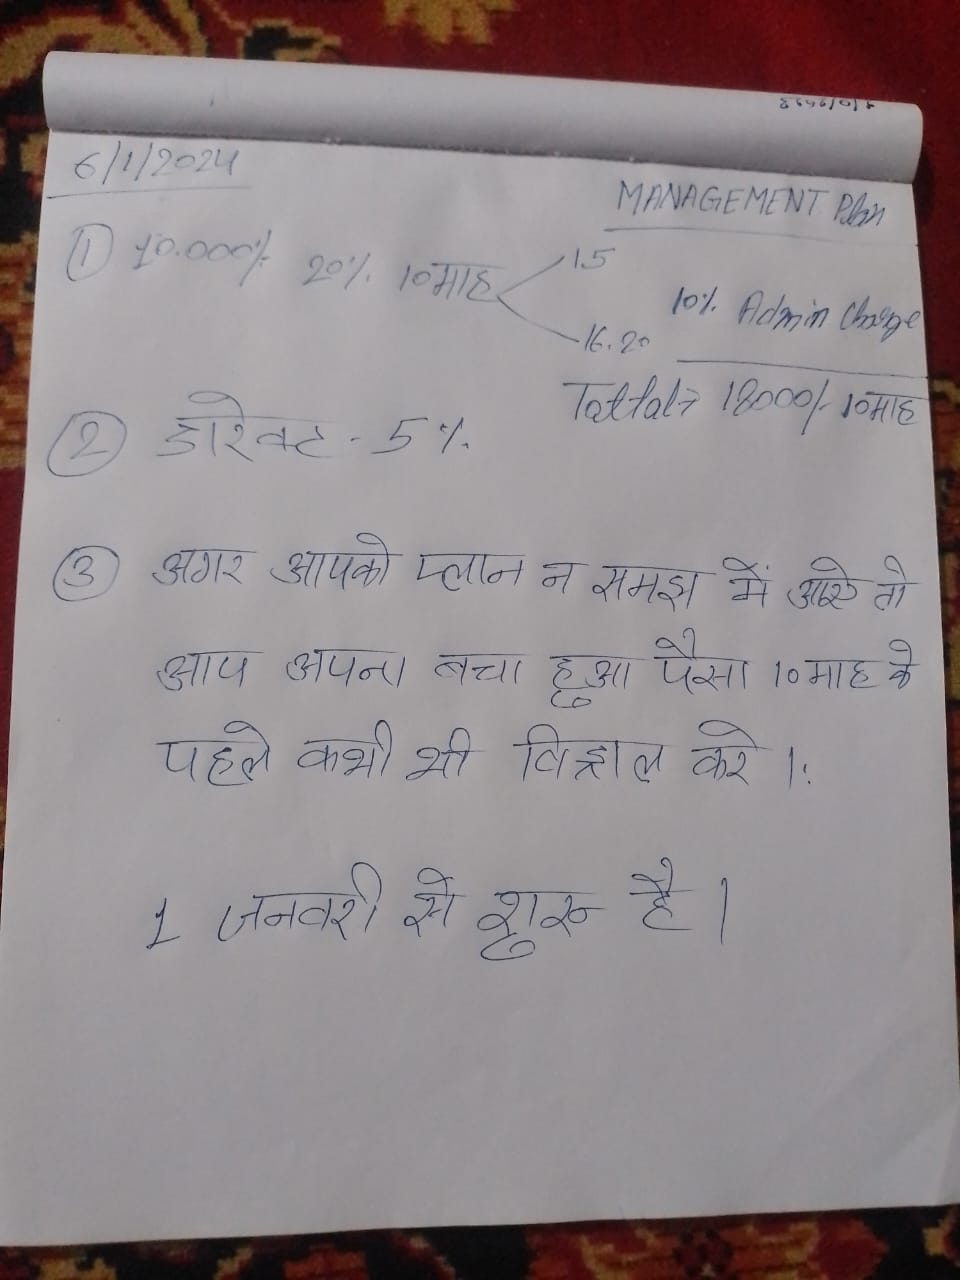 6/1/2024
MANAGEMENT Plan
① 10.000/- 20% 10माह 15
16.20
10% Admin Charge
Tattal→ 18000/- 10माह
② डारेक्ट - 5%
③ अगर आपको प्लान न समझ में आऐ तो
आप अपना बचा हुआ पैसा 10माह के
पहले कभी भी विड्राल करे ।
1 जनवरी से शुरू है ।